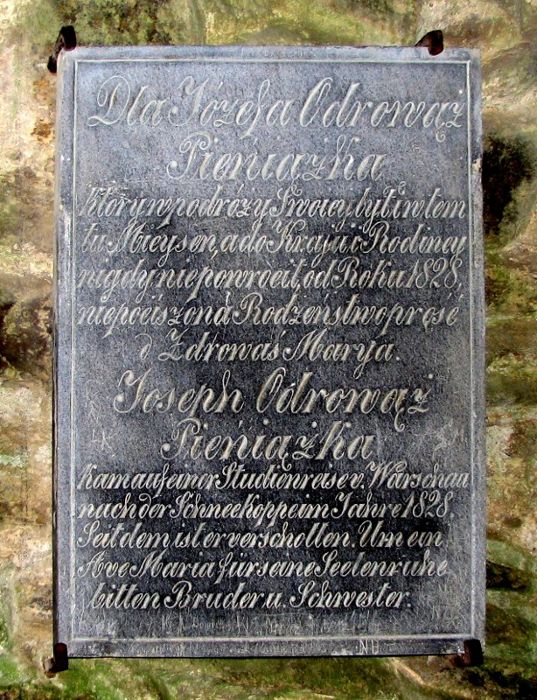 Dla Józefa Odrowąż
Pieniążka
który w podróży Swoiey był i w tem
tu Mieyscu, a do Kraju i Rodziney
nigdy nie powrocił, od Roku 1828,
niepocişzona Rodzeństwo prosé
o Zdrowaś Marya.
Joseph Odrowąż
Pieniążka
kam auf einer Studienreise v. Warschau
nach der Schneekoppe im Jahre 1828.
Seit dem ist er verschollen. Um ein
Ave Maria für seine Seelenruhe
bitten Bruder u. Schwester.